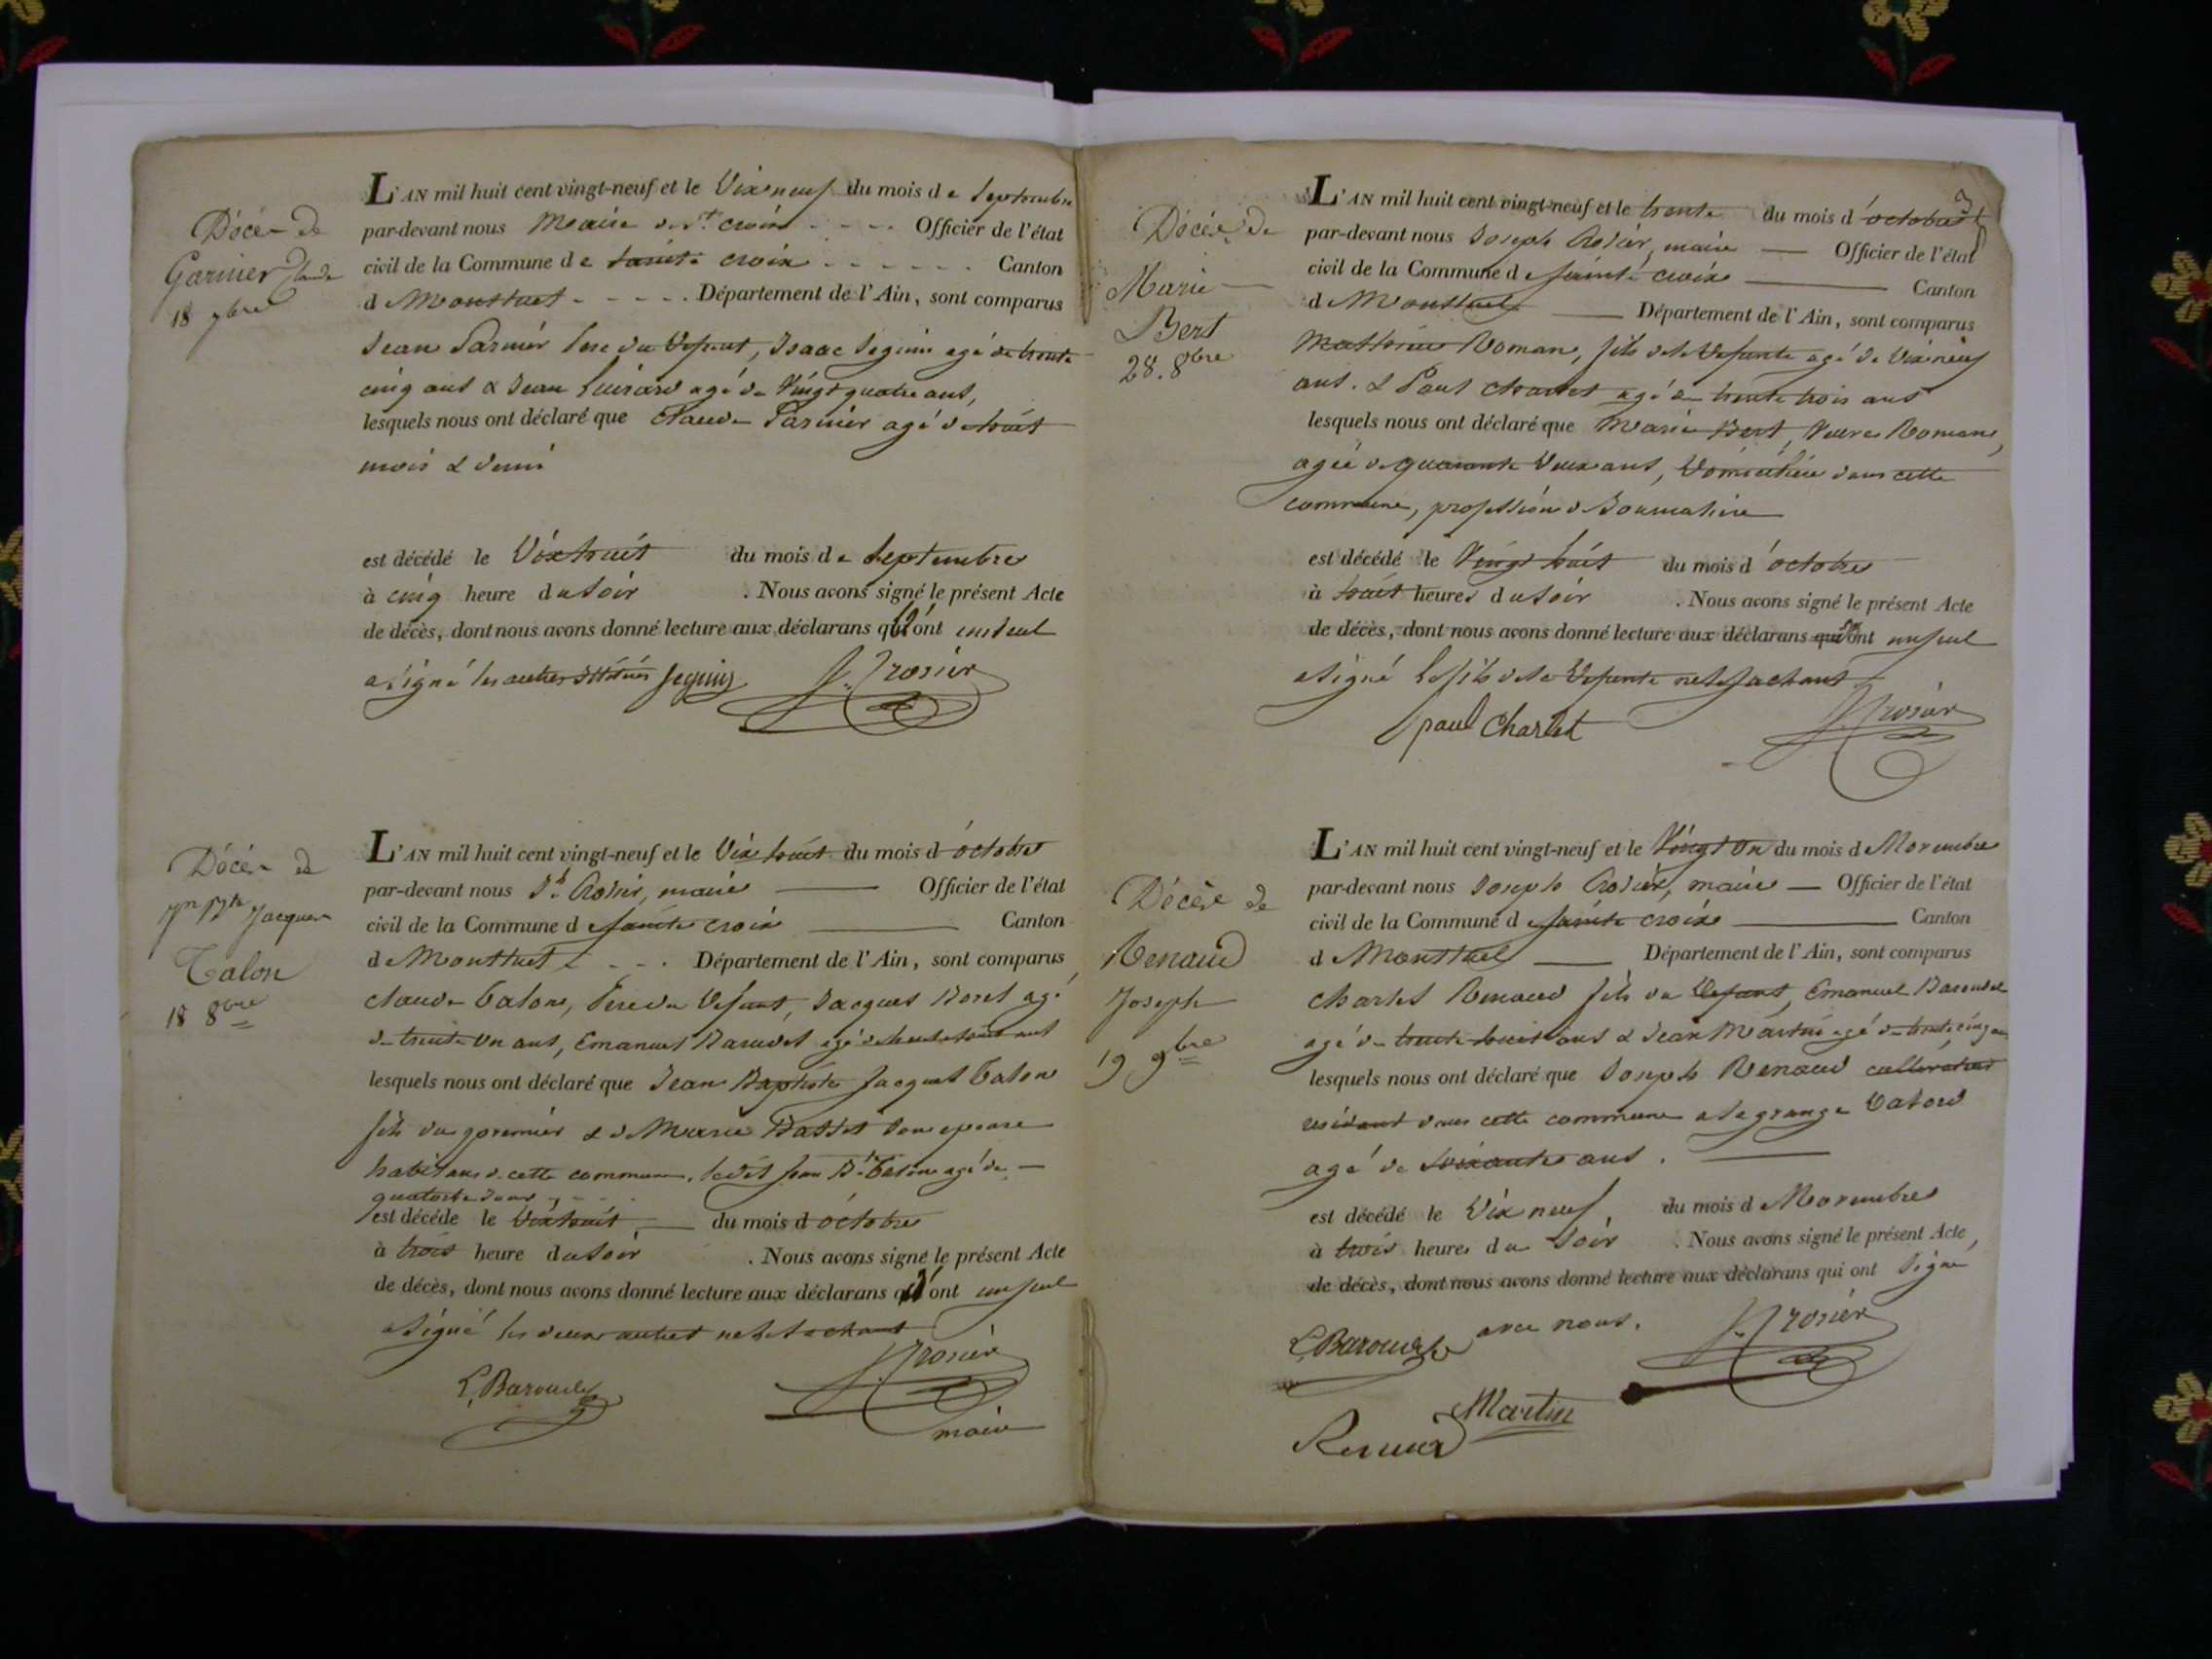 Décès de
Garnier Claude
18 7bre
L'AN mil huit cent vingt-neuf et le dix neuf du mois de Septembre
par-devant nous Maire de Ste croix Officier de l'état
civil de la Commune de Sainte croix Canton
d Montluel Département de l'Ain, sont comparus
Jean Garnier Pere du defunt, Isaac Seguin agé de trente
cinq ans & Jean agé de Vingt quatre ans,
lesquels nous ont déclaré que Claude Garnier agé de huit
mois & demi
est décédé le dix huit du mois de Septembre
à cinq heure du Soir . Nous avons signé le présent Acte
de décès, dont nous avons donné lecture aux déclarans qui ont un seul
a signé les autres Seguin J. rosier
Décès de
Jn Bte Jacques
Talon
18 8bre
L'AN mil huit cent vingt-neuf et le dix huit du mois d'octobre
par-devant nous Jh Rosier, maire Officier de l'état
civil de la Commune de Sainte croix Canton
d Montluel Département de l'Ain, sont comparus
Claude Talon, Pere du defunt, Jacques Borel agé
de trente un ans, Emanuel Baroudel agé de trente huit ans
lesquels nous ont déclaré que Jean Baptiste Jacques Talon
fils du premier & de Marie Basset Son epouse
habitans de cette commune, ledit Jean Bte Talon agé de
quatorze Jours
est décédé le dix huit du mois d'octobre
à trois heure du Soir . Nous avons signé le présent Acte
de décès, dont nous avons donné lecture aux déclarans qui ont un seul
a signé les deux autres ne le sachant
E. Baroudel J. rosier
maire
3
Décès de
Marie
Bert
28. 8bre
L'AN mil huit cent vingt-neuf et le trente du mois d'octobre
par-devant nous Joseph Rosier, maire Officier de l'état
civil de la Commune de Sainte croix Canton
d Montluel Département de l'Ain, sont comparus
Roman, fils de la defunte agé de dix neuf
ans. & Paul Charlet agé de trente trois ans
lesquels nous ont déclaré que Marie Bert, Veuve Roman,
agée de quarante deux ans, domiciliée dans cette
commune, profession de Journaliere
est décédé le Vingt huit du mois d'octobre
à huit heures du Soir . Nous avons signé le présent Acte
de décès, dont nous avons donné lecture aux déclarans qui ont un seul
a signé le fils de la defunte ne le sachant
paul Charlet J. rosier
Décès de
Renaud
Joseph
19 9bre
L'AN mil huit cent vingt-neuf et le Vingt un du mois de Novembre
par-devant nous Joseph Rosier, maire Officier de l'état
civil de la Commune de Sainte croix Canton
d Montluel Département de l'Ain, sont comparus
Charles Renaud fils du defunt, Emanuel Baroudel
agé de trente huit ans & Jean Martin agé de trente cinq ans
lesquels nous ont déclaré que Joseph Renaud cultivateur
résidant dans cette commune a la grange
agé de Soixante ans.
est décédé le dix neuf du mois de Novembre
à trois heures du Soir . Nous avons signé le présent Acte,
de décès, dont nous avons donné lecture aux déclarans qui ont Signé
avec nous.
E. Baroudel J. rosier
Martin
Renaud